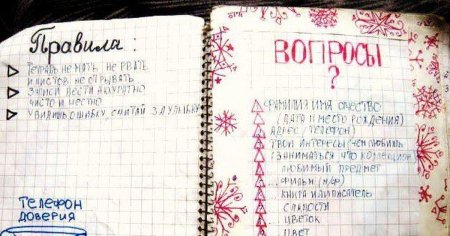 Правила:
Тетрадь не мять, не рвать
и листов не отрывать
Записи вести аккуратно
чисто и честно
Увидишь ошибку, считай за улыбку
ТЕЛЕФОН
ДОВЕРИЯ
ВОПРОСЫ
?
ФАМИЛИЯ ИМЯ ОЧЕСТВО
(ДАТА И МЕСТО РОЖДЕНИЯ)
АДРЕС /ТЕЛЕФОН/
ТВОИ ИНТЕРЕСЫ (ЧЕМ ЛЮБИШЬ
ЗАНИМАТЬСЯ ЧТО
ЛЮБИМЫЙ ПРЕДМЕТ
...ФИЛЬМ (М/Ф)
... КНИГА ИЛИ ПИСАТЕЛЬ
... СЛАДОСТИ
... ЦВЕТОК
... ЦВЕТ